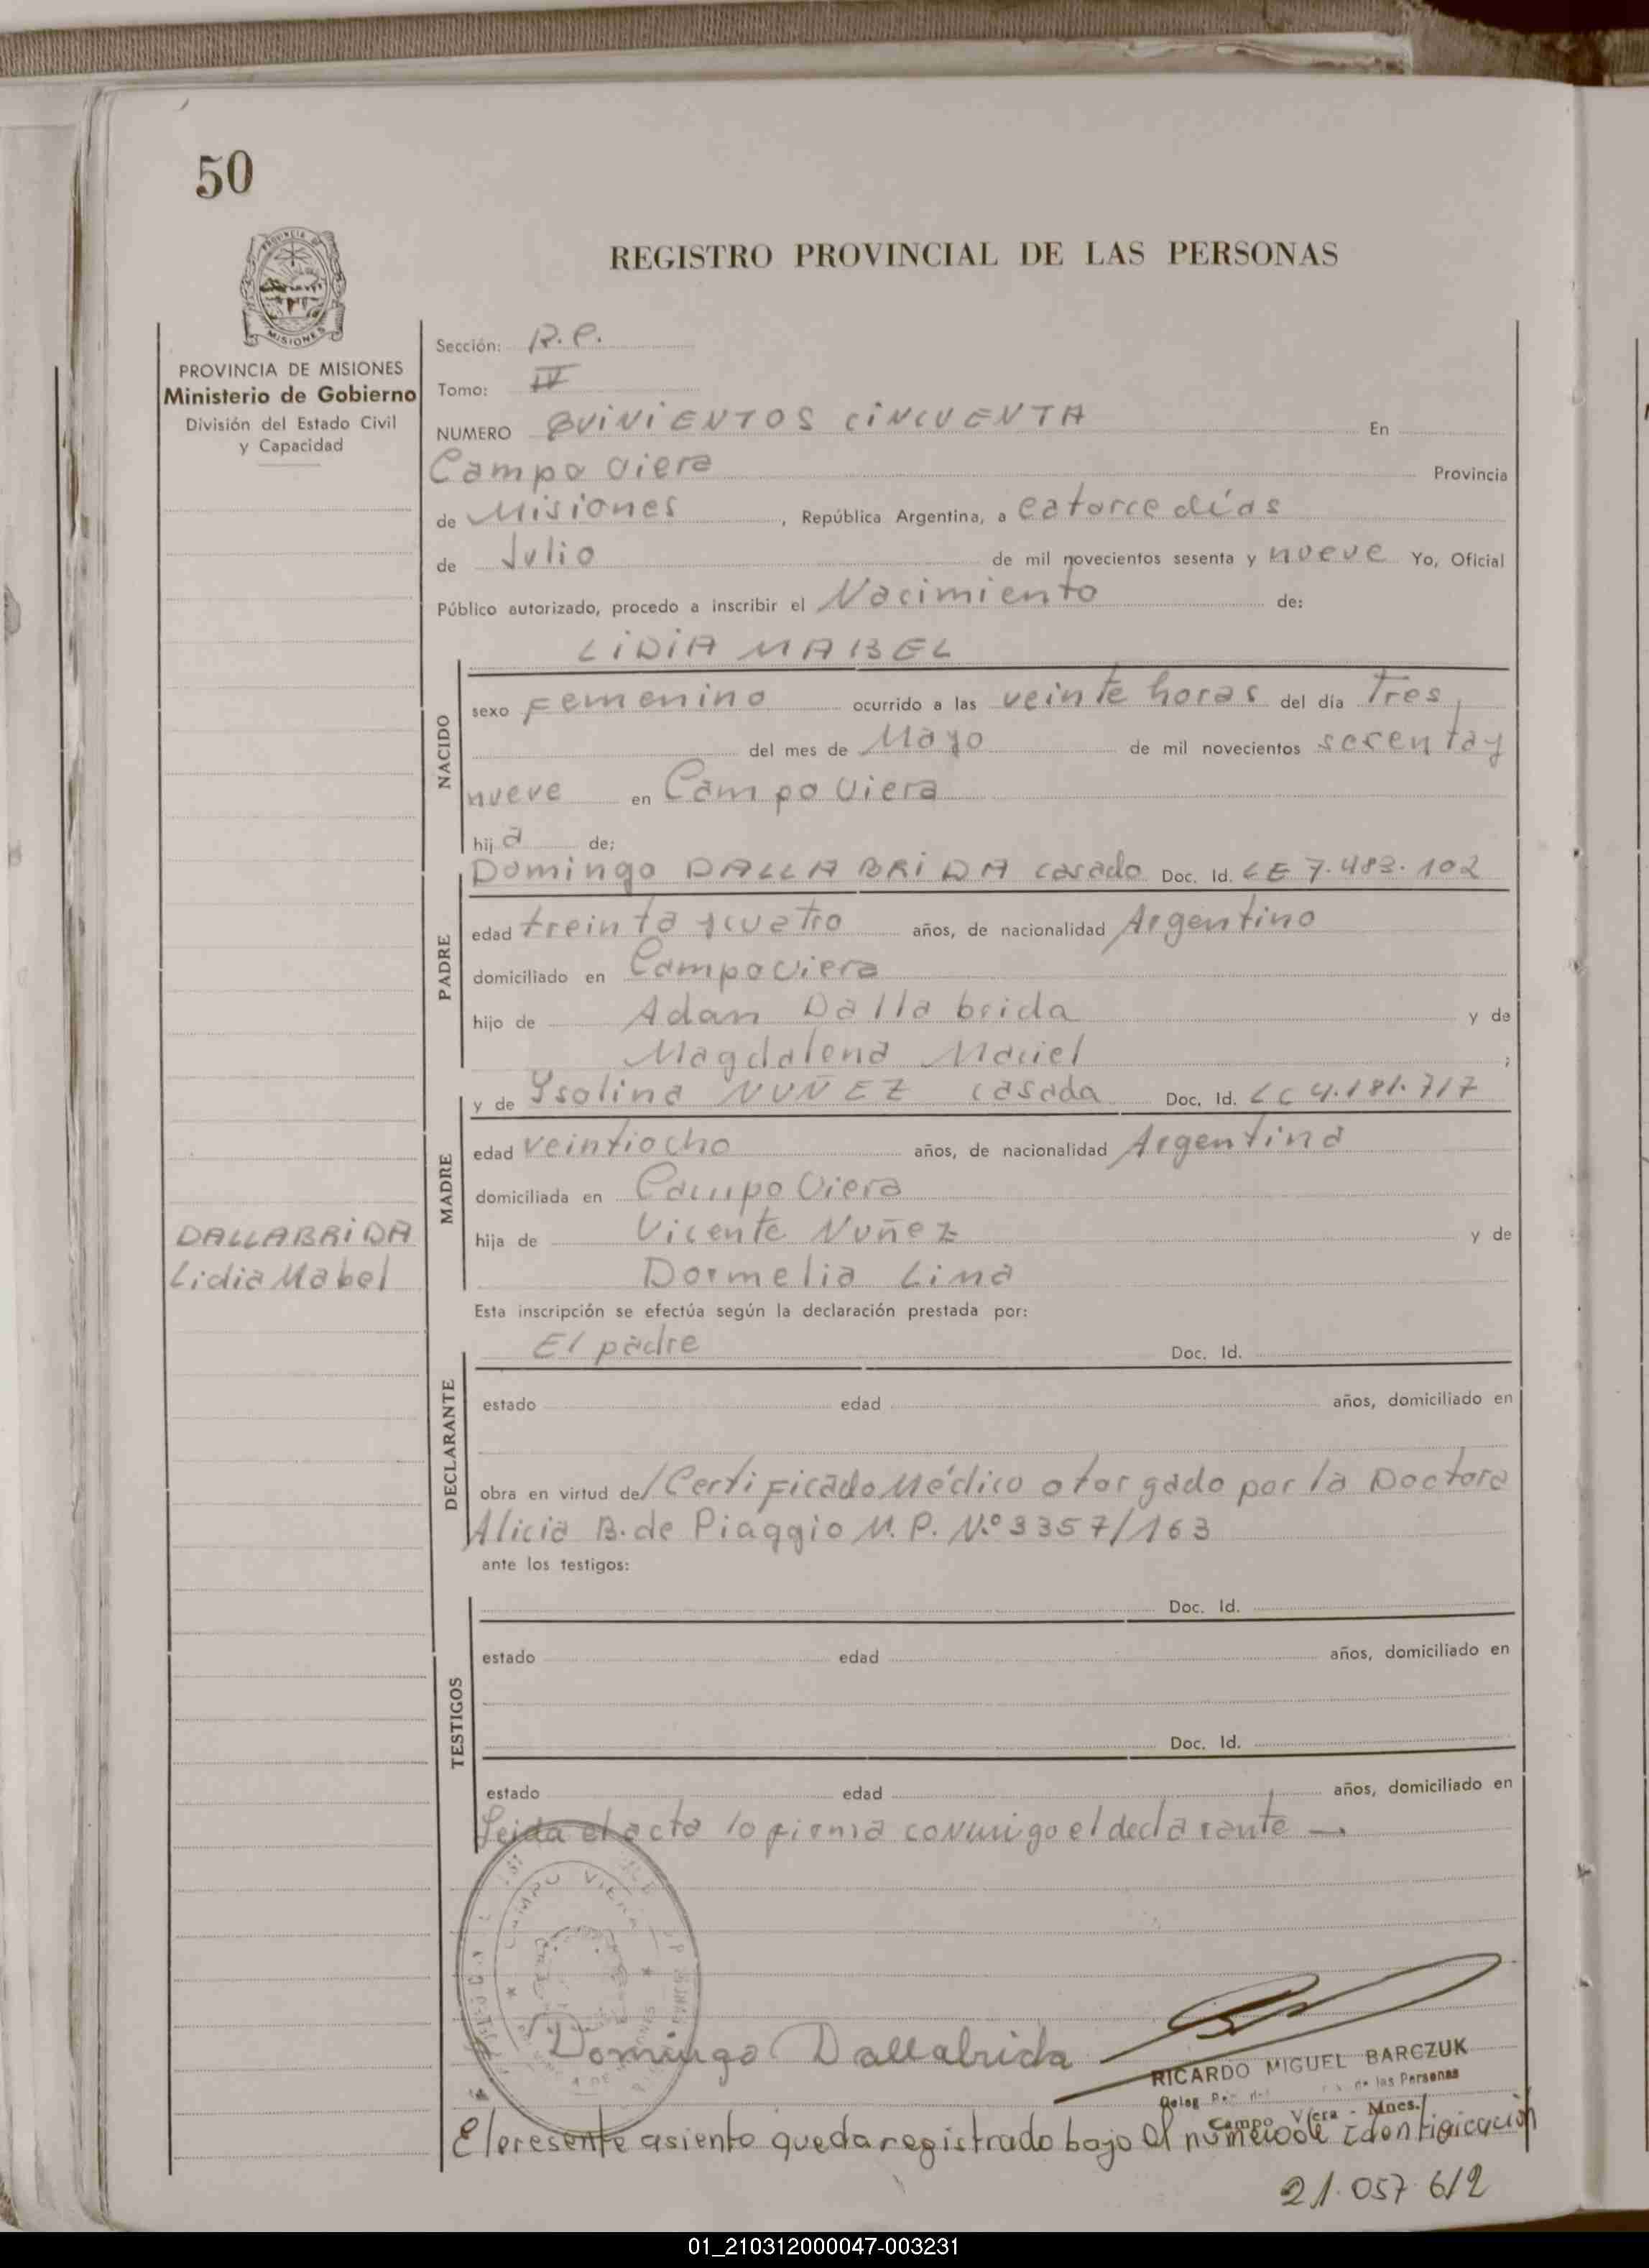 50
REGISTRO PROVINCIAL DE LAS PERSONAS
PROVINCIA DE MISIONES
Ministerio de Gobierno
División del Estado Civil
y Capacidad
Sección: R.P.
Tomo: IV
NUMERO QUINIENTOS CINCUENTA En
Campo Viera Provincia
de Misiones, República Argentina, a catorce días
de Julio de mil novecientos sesenta y nueve Yo, Oficial
Público autorizado, procedo a inscribir el Nacimiento de:
LIDIA MABEL
NACIDO
sexo Femenino ocurrido a las veinte horas del día Tres
del mes de Mayo de mil novecientos sesenta y
nueve en Campo Viera
hija de:
PADRE
Domingo DALLABRIDA casado Doc. Id. LE 7.483.102
edad treinta y cuatro años, de nacionalidad Argentino
domiciliado en Campo Viera
hijo de Adan Dallabrida y de
Magdalena Maciel ;
MADRE
y de Ysolina NUÑEZ casada Doc. Id. LC 4.181.717
edad veintiocho años, de nacionalidad Argentina
domiciliada en Campo Viera
hija de Vicente Nuñez y de
Dormelia Lima
DALLABRIDA
Lidia Mabel
Esta inscripción se efectúa según la declaración prestada por:
DECLARANTE
El padre Doc. Id.
estado edad años, domiciliado en
obra en virtud de/ Certificado Médico otorgado por la Doctora
Alicia B. de Piaggio M.P. N.º 3357/163
ante los testigos:
TESTIGOS
Doc. Id.
estado edad años, domiciliado en
Doc. Id.
estado edad años, domiciliado en
Leida el acta lo firma conmigo el declarante —
CAMPO VIERA
Domingo Dallabrida
RICARDO MIGUEL BARCZUK
de las Personas
Campo Viera - Mnes.
El presente asiento queda registrado bajo el número de identificación
21.057.612
01_210312000047-003231